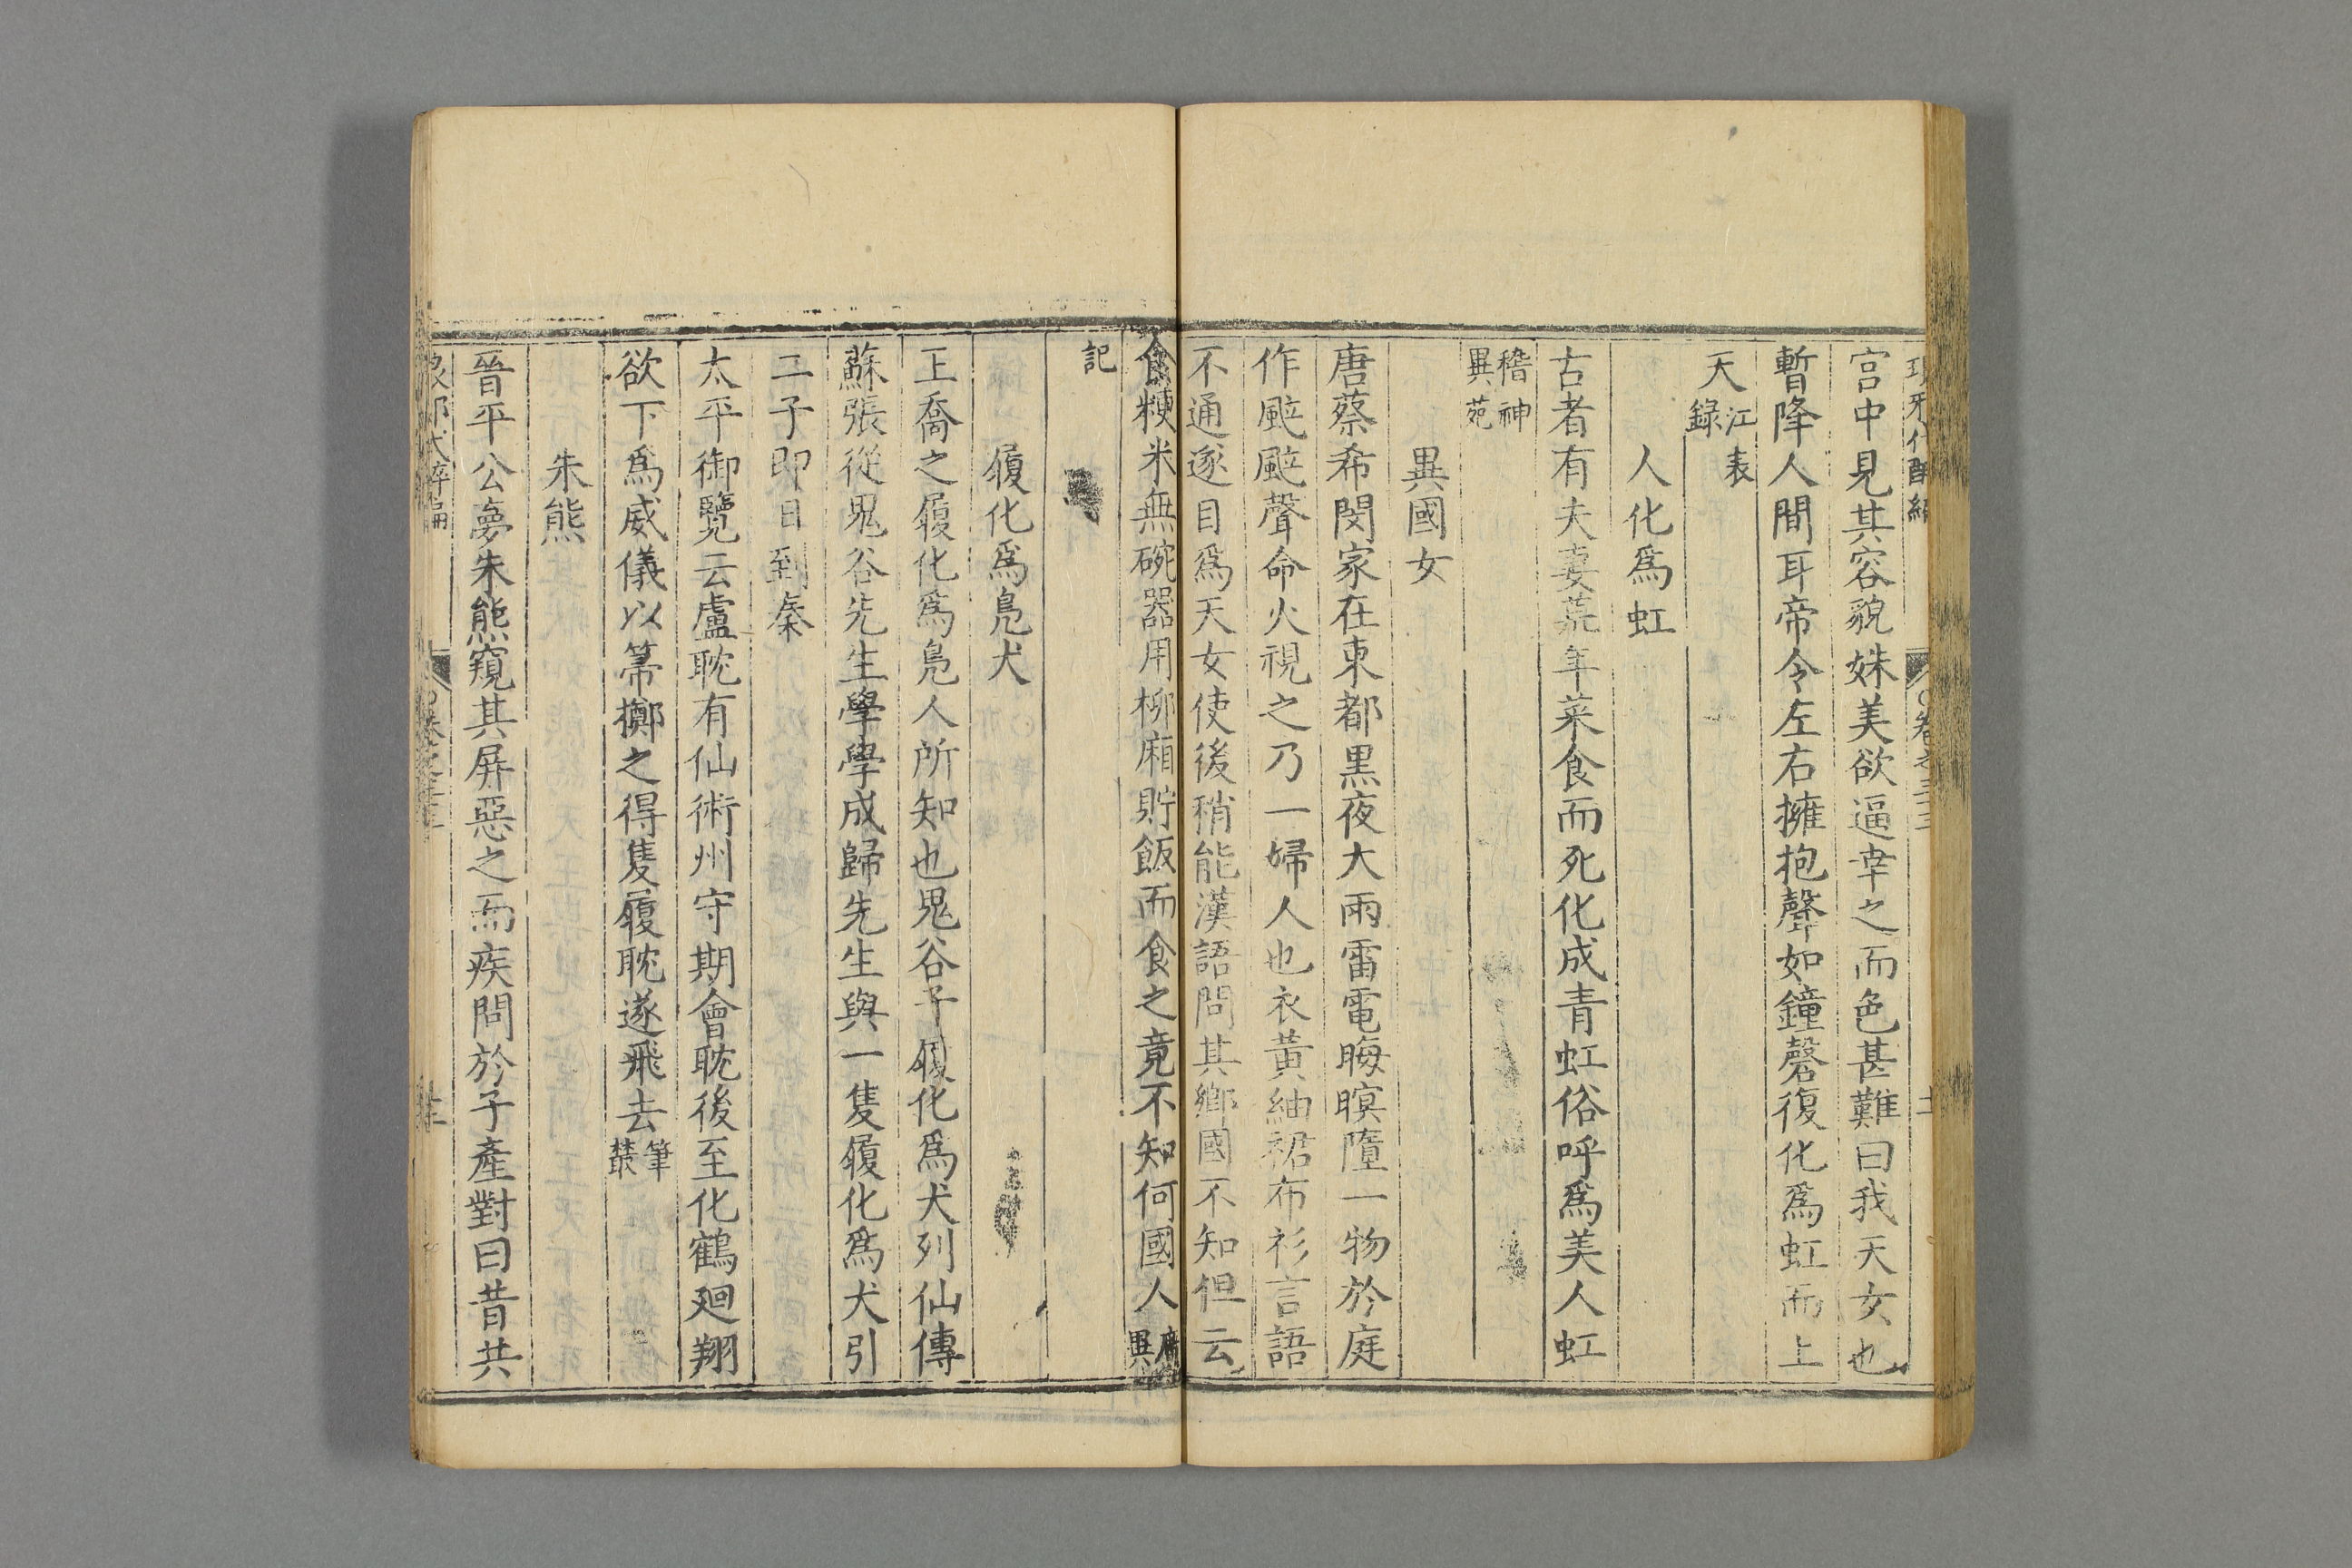 宫中見其容貌姝美欲逼幸之而色甚難曰我天女也
暫降人間耳帝令左右擁抱聲如鐘磬復化爲虹而上
天江表錄
人化爲虹
古者有夫妻荒年菜食而死化成青虹俗呼爲美人虹
稽神異苑
異國女
唐蔡希閔家在東都黑夜大雨雷電晦暝墮一物於庭
作颭颭聲命火視之乃一婦人也衣黃紬裙布衫言語
不通遂目爲天女使後稍能漢語問其鄉國不知但云
食粳米無碗器用柳廂貯飯而食之竟不知何國人廣異
記
履化爲鳧犬
王喬之履化爲鳧人所知也鬼谷子履化爲犬列仙傳
蘇張從鬼谷先生學學成歸先生與一隻履化爲犬引
二子即日到秦
太平御覽云盧耽有仙術州守期會耽後至化鶴廻翔
欲下爲威儀以箒擲之得隻履耽遂飛去筆叢
朱熊
晉平公夢朱熊窺其屏惡之而疾問於子產對曰昔共